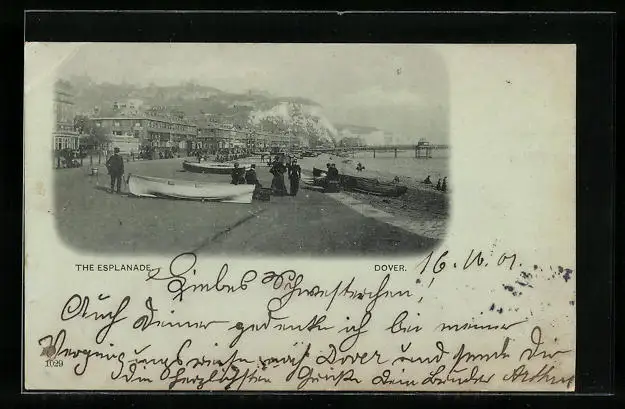 THE ESPLANADE.
DOVER.
16. 10. 01.
Liebes Schwesterchen!
Auch Deiner gedenke ich bei meiner
Vergnügungsreise nach Dover und sende Dir
die herzlichsten Grüsse Dein Bruder Arthur
1029